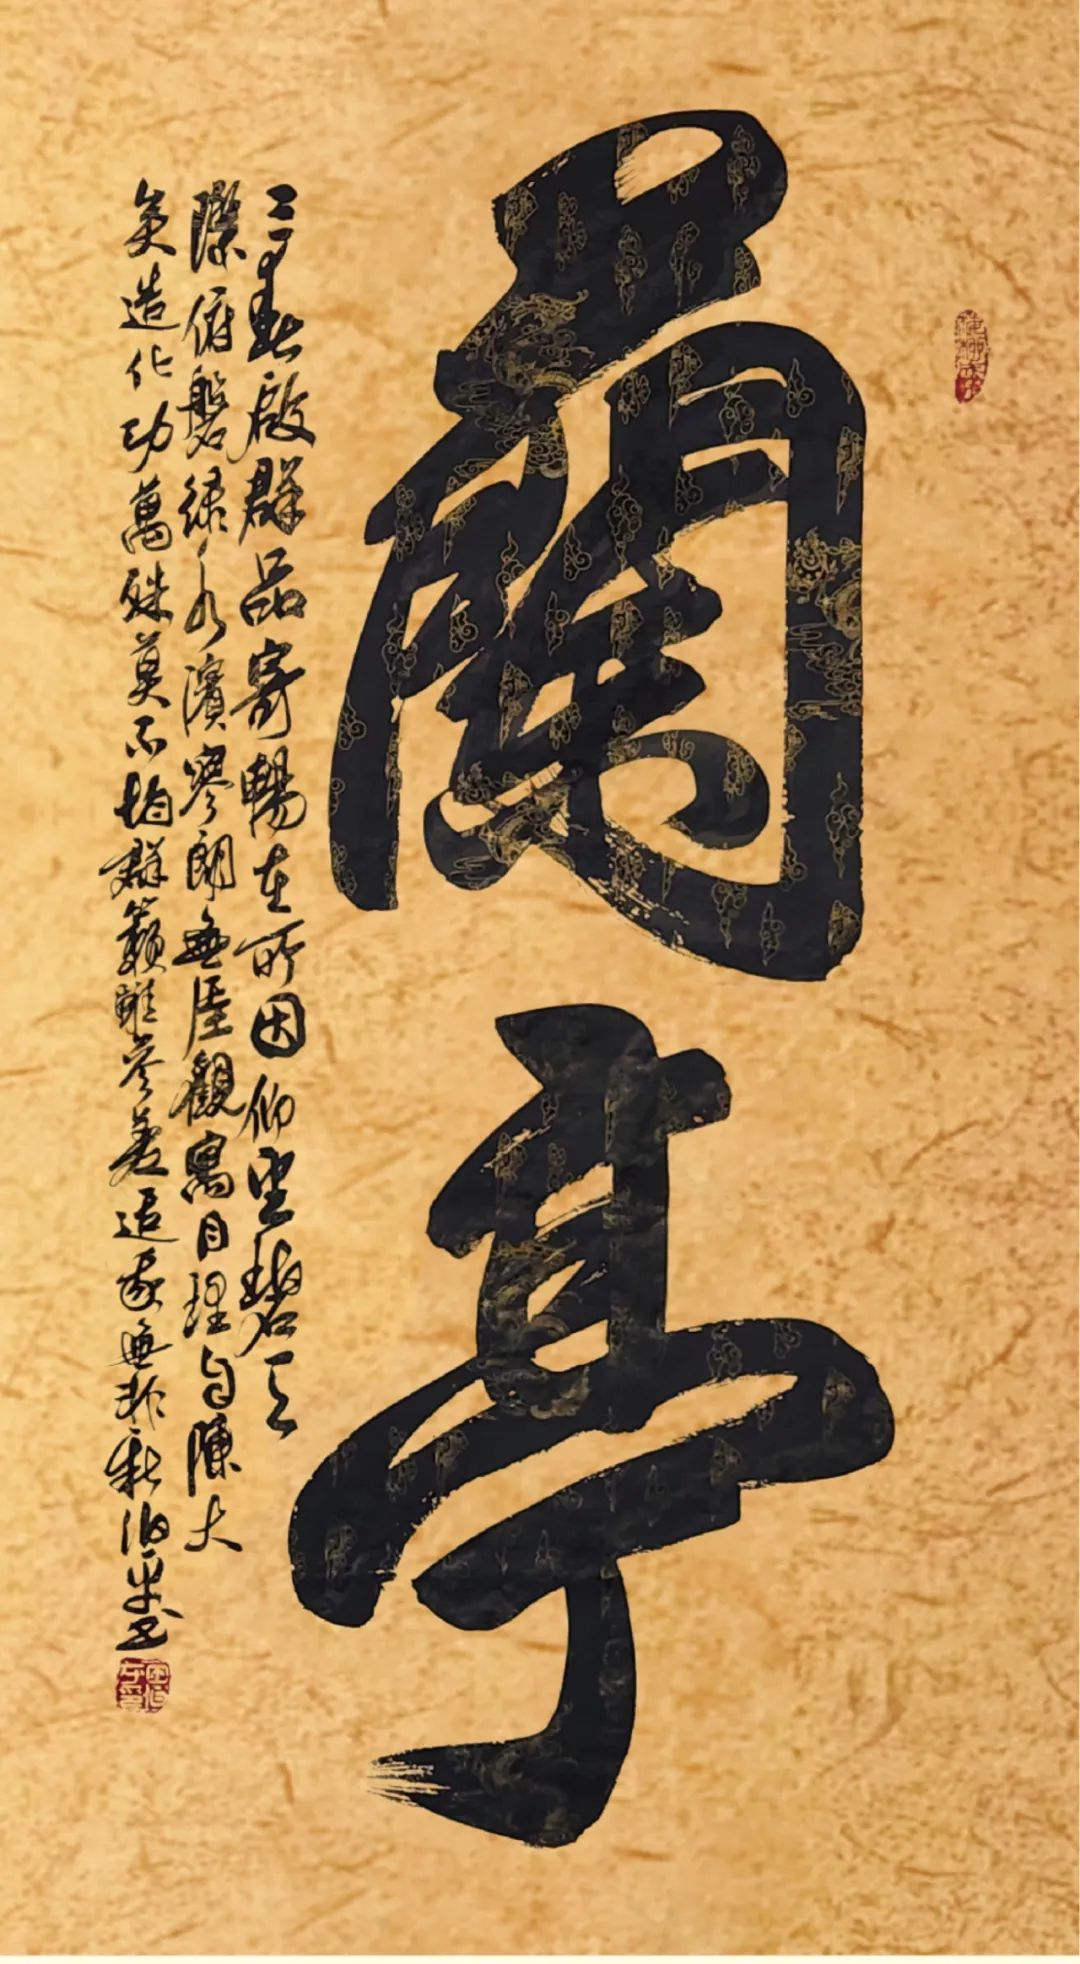 蘭亭
三春啟群品寄暢在所因仰望碧天
際俯磐綠水濱寥朗無厓觀寓目理自陳大
矣造化功萬殊莫不均群籟雖參差適我無非新伯平書